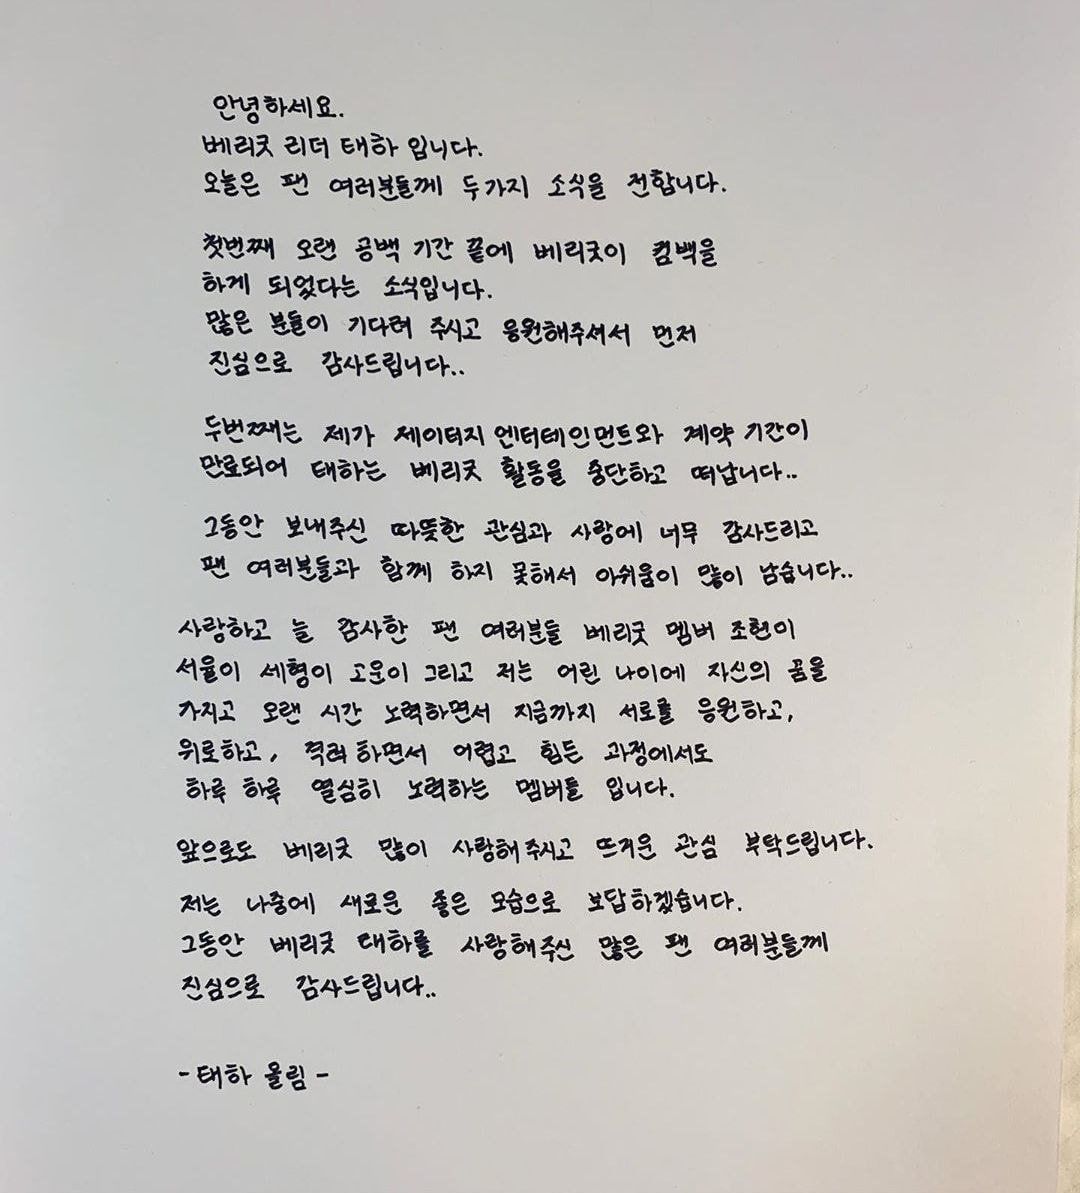 안녕하세요.
베리굿 리더 태하 입니다.
오늘은 팬 여러분들께 두가지 소식을 전합니다.
첫번째 오랜 공백 기간 끝에 베리굿이 컴백을
하게 되었다는 소식입니다.
많은 분들이 기다려 주시고 응원해주셔서 먼저
진심으로 감사드립니다..
두번째는 제가 제이티지 엔터테인먼트와 계약 기간이
만료되어 태하는 베리굿 활동을 중단하고 떠납니다..
그동안 보내주신 따뜻한 관심과 사랑에 너무 감사드리고
팬 여러분들과 함께 하지 못해서 아쉬움이 많이 남습니다..
사랑하고 늘 감사한 팬 여러분들 베리굿 멤버 조현이
서율이 세형이 고운이 그리고 저는 어린 나이에 자신의 꿈을
가지고 오랜 시간 노력하면서 지금까지 서로를 응원하고,
위로하고, 격려하면서 어렵고 힘든 과정에서도
하루 하루 열심히 노력하는 멤버들 입니다.
앞으로도 베리굿 많이 사랑해주시고 뜨거운 관심 부탁드립니다.
저는 나중에 새로운 좋은 모습으로 보답하겠습니다.
그동안 베리굿 태하를 사랑해주신 많은 팬 여러분들께
진심으로 감사드립니다..
- 태하 올림 -